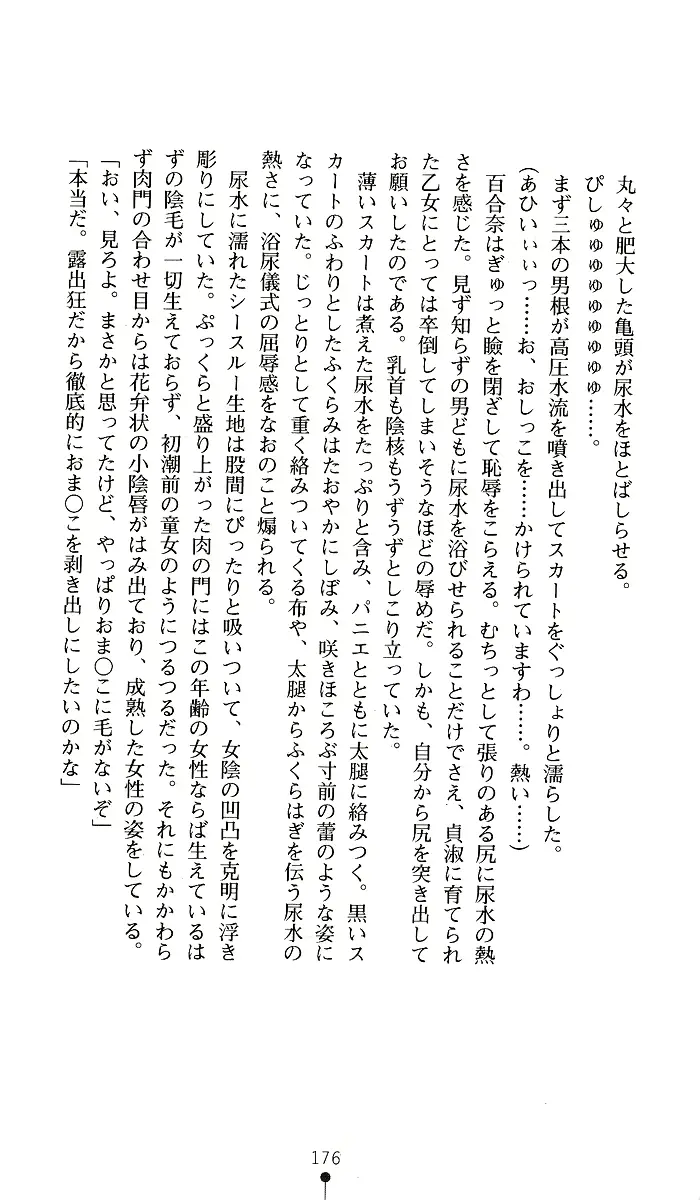 丸々と肥大した亀頭が尿水をほとばしらせる。
ぴしゅゅゅゅゅゅゅ……。
まず三本の男根が高圧水流を噴き出してスカートをぐっしょりと濡らした。
(あひぃぃぃっ……お、おしっこを……かけられていますわ……。熱い……)
百合奈はぎゅっと瞼を閉ざして恥辱をこらえる。むちっとして張りのある尻に尿水の熱
さを感じた。見ず知らずの男どもに尿水を浴びせられることだけでさえ、貞淑に育てられ
た乙女にとっては卒倒してしまいそうなほどの辱めだ。しかも、自分から尻を突き出して
お願いしたのである。乳首も陰核もうずうずとしこり立っていた。
薄いスカートは煮えた尿水をたっぷりと含み、パニエとともに太腿に絡みつく。黒いス
カートのふわりとしたふくらみはたおやかにしぼみ、咲きほころぶ寸前の蕾のような姿に
なっていた。じっとりとして重く絡みついてくる布や、太腿からふくらはぎを伝う尿水の
熱さに、浴尿儀式の屈辱感をなおのこと煽られる。
尿水に濡れたシースルー生地は股間にぴったりと吸いついて、女陰の凹凸を克明に浮き
彫りにしていた。ぷっくらと盛り上がった肉の門にはこの年齢の女性ならば生えているは
ずの陰毛が一切生えておらず、初潮前の童女のようにつるつるだった。それにもかかわら
ず肉門の合わせ目からは花弁状の小陰唇がはみ出ており、成熟した女性の姿をしている。
「おい、見ろよ。まさかと思ってたけど、やっぱりおま〇こに毛がないぞ」
「本当だ。露出狂だから徹底的におま〇こを剥き出しにしたいのかな」
176